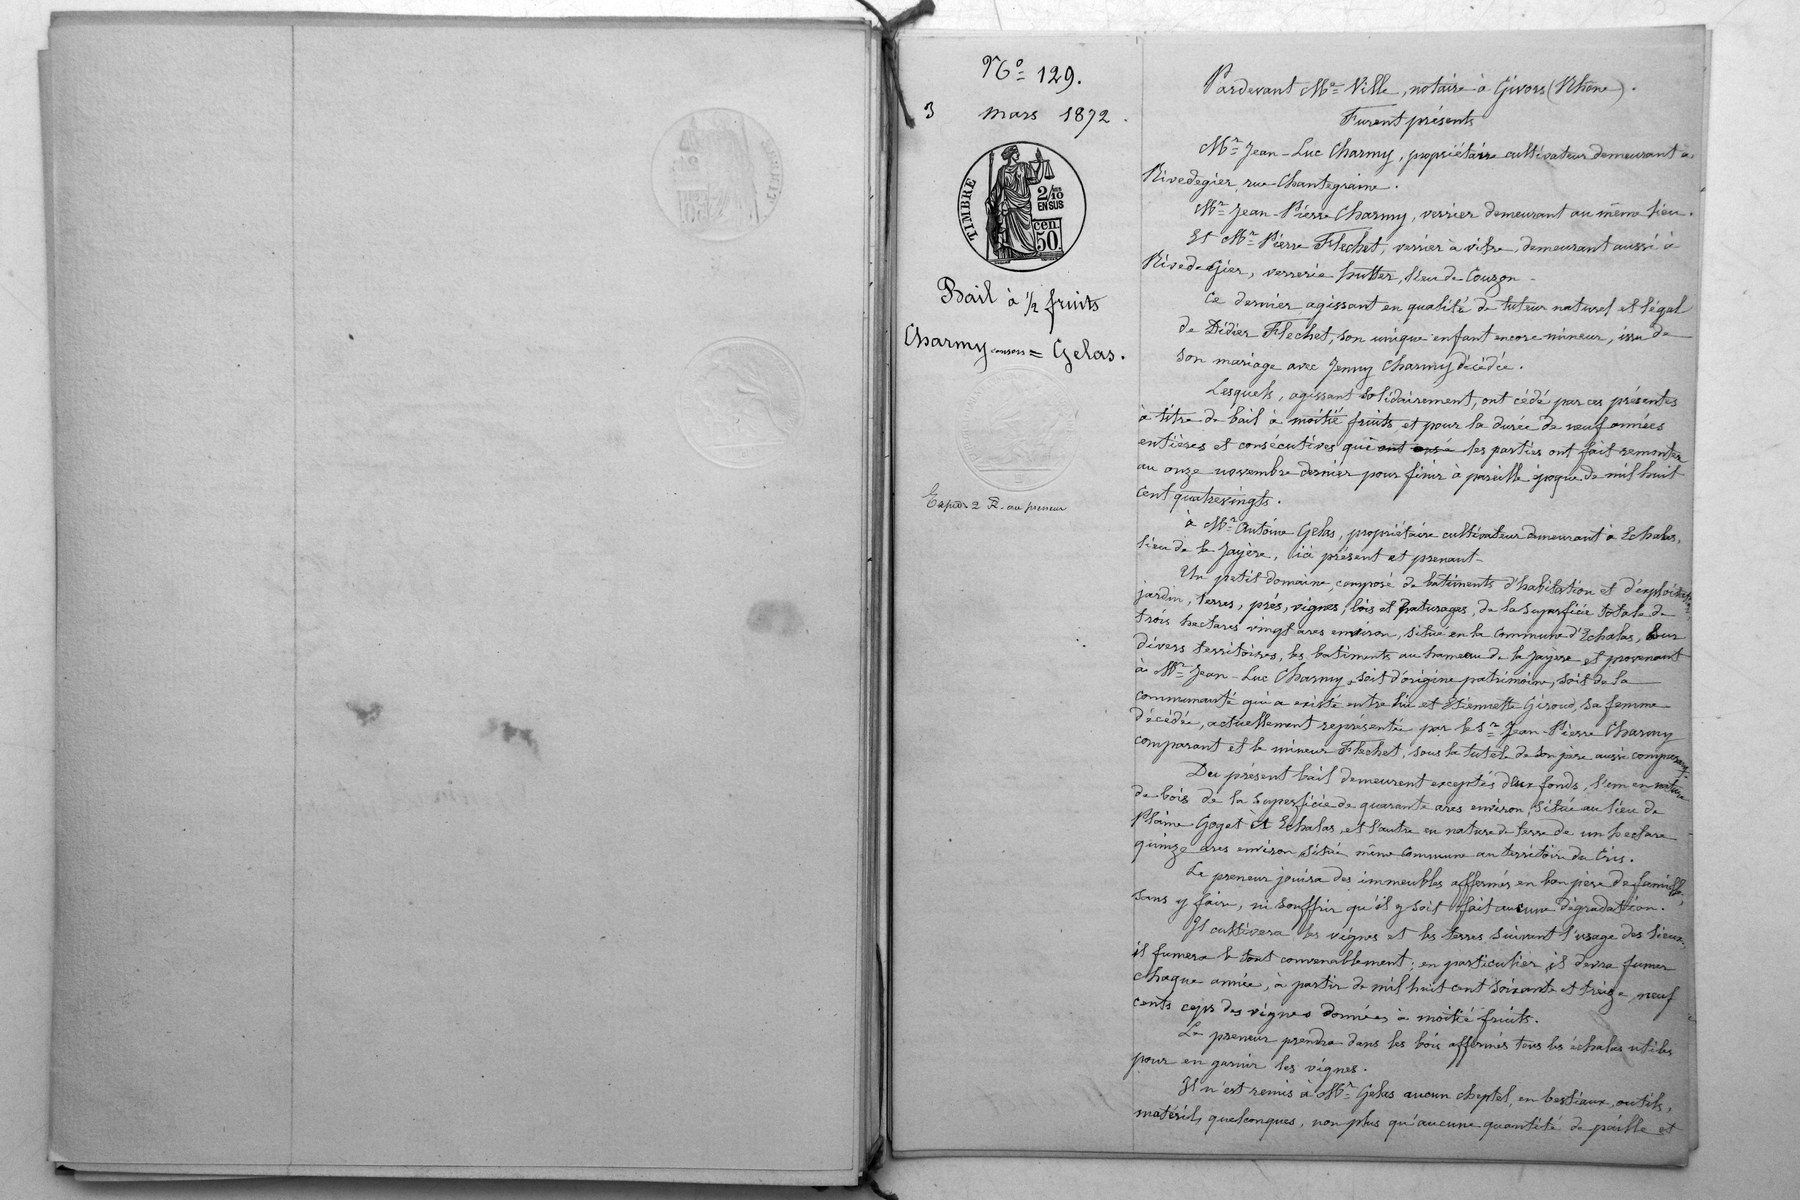 N° 129.
3 mars 1872.
TIMBRE
2/10
EN SUS
cen.
50
Bail à 1/2 fruits
Charmy consors = Gelas.
Expér 2 R. au preneur
Pardevant Me Ville, notaire à Givors (Rhône).
Furent présents
Mr Jean-Luc Charmy, propriétaire cultivateur demeurant à
Rivedegier, rue Chantegraine.
Mr Jean-Pierre Charmy, verrier demeurant au même lieu.
Et Mr Pierre Flechet, verrier à vitre, demeurant aussi à
Rivedegier, verrerie hutter, lieu de Couzon.
Ce dernier agissant en qualité de tuteur naturel et légal
de Didier Flechet, son unique enfant encore mineur, issu de
son mariage avec Jenny Charmy décédée.
Lesquels, agissant solidairement, ont cédé par ces présentes
à titre de bail à moitié fruits et pour la durée de neuf années
entières et consécutives que les parties ont fait remonter
au onze novembre dernier pour finir à pareille époque de mil huit
cent quatrevingts.
à Mr Antoine Gelas, propriétaire cultivateur demeurant à Echalas,
lieu de la Jayère, ici présent et prenant
Un petit domaine, composé de batiments d'habitation et d'exploitation
jardin, terres, prés, vignes, bois et paturages, de la superficie totale de
trois hectares vingt ares environ, situé en la commune d'Echalas, sur
divers territoires, les batiments au hameau de la Jayère et provenant
à Mr Jean-Luc Charmy, soit d'origine patrimoine, soit de la
communauté qui a existé entre lui et Etiennette Giroud, sa femme
décédée, actuellement représentée par le Sr Jean-Pierre Charmy
comparant et le mineur Flechet, sous la tutele de son père aussi comparant.
Du présent bail demeurent exceptés deux fonds, l'un en nature
de bois de la superficie de quarante ares environ, situé au lieu de
Plaine Goget et Echalas, et l'autre en nature de terre de un hectare
quinze ares environ, situé même commune au territoire de Cris.
Le preneur jouira des immeubles affermés en bon père de famille,
sans y faire, ni souffrir qu'il y soit fait aucune dégradation.
Il cultivera les vignes et les terres suivant l'usage des lieux,
il fumera le tout convenablement; en particulier, il devra fumer
chaque année, à partir de mil huit cent soixante et treize, neuf
cents ceps des vignes données à moitié fruits.
Le preneur prendra dans les bois affermés tous les échalas utiles
pour en garnir les vignes.
Il n'est remis à Mr Gelas aucun cheptel, en bestiaux, outils,
matériels quelconques, non plus qu'aucune quantité de paille et